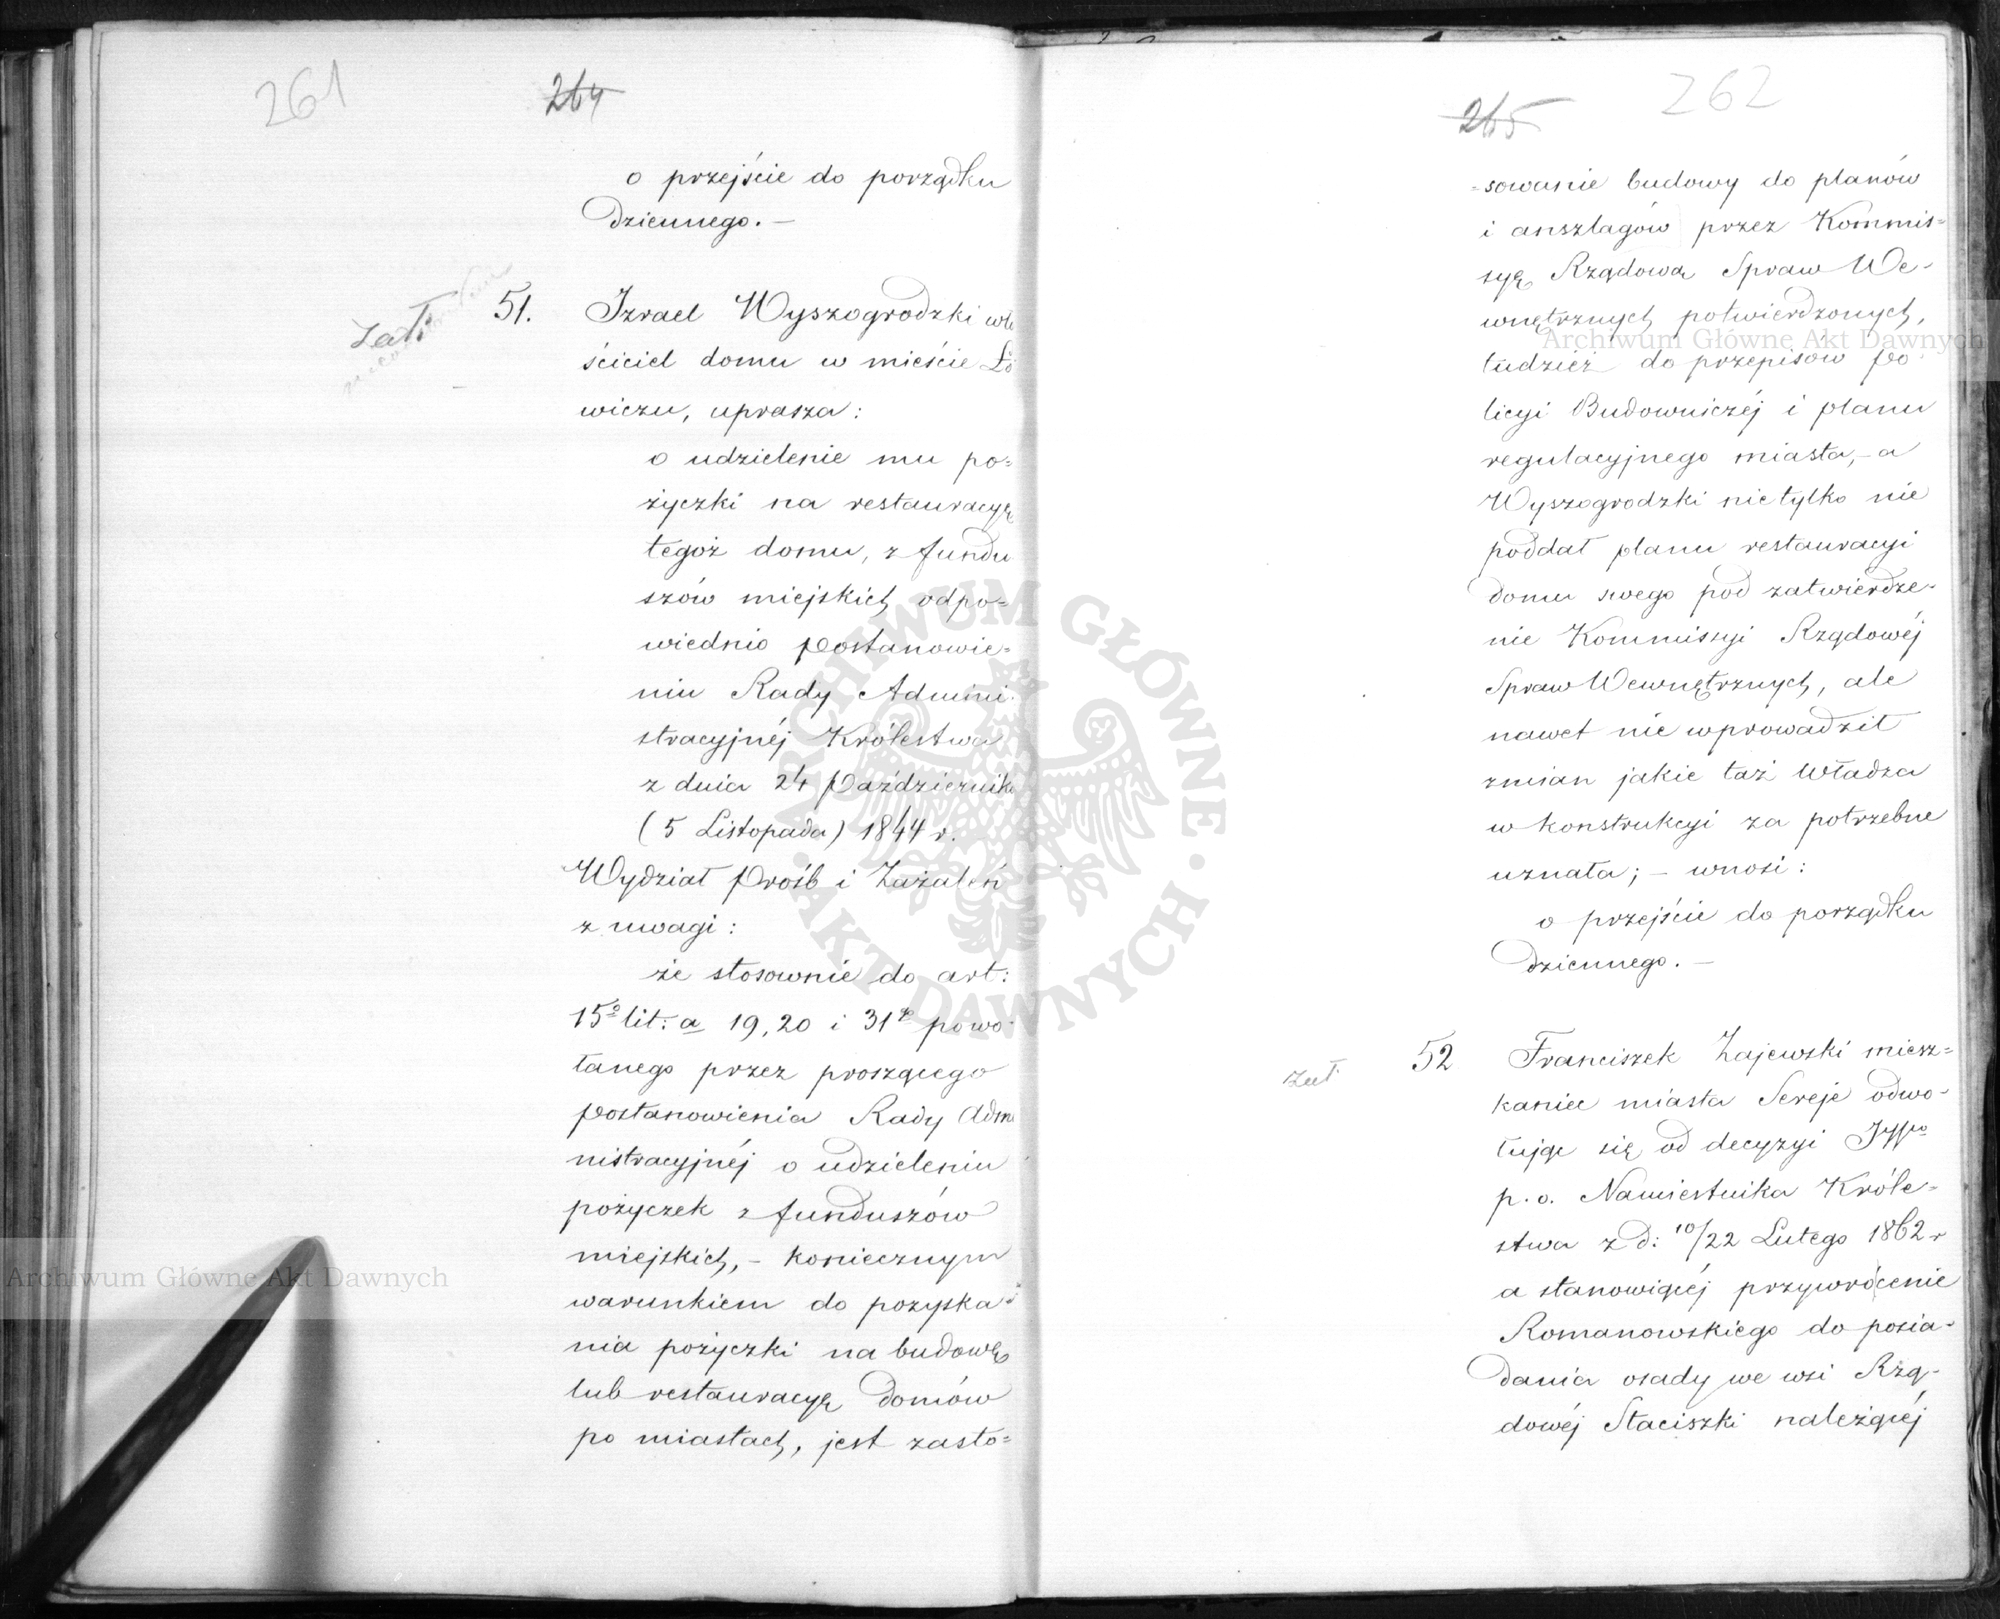 261
264
o przejście do porządku
dziennego. –
Zał:
51. Izrael Wyszogrodzki wła
ściciel domu w mieście Ło
wiczu, uprasza:
o udzielenie mu po=
życzki na restauracyę
tegoż domu, z fundu
szów miejskich odpo=
wiednio postanowie=
niu Rady Admini
stracyjnéj Królestwa
z dnia 24 Października
(5 Listopada) 1844 r.
Wydział Próśb i Zażaleń
z uwagi:
że stosownie do art:
15º lit: a 19, 20 i 31º powo-
łanego przez proszącego
postanowienia Rady Admi
nistracyjnéj o udzieleniu
pożyczek z funduszów
miejskich, – koniecznym
warunkiem do pozyska=
nia pożyczki na budowę
lub restauracyę domów
po miastach, jest zasto=
262
265
=sowanie budowy do planów
i anszlagów przez Kommis=
syę Rządową Spraw We-
wnętrznych potwierdzonych,
tudzież do przepisów po-
licyi Budowniczéj i planu
regulacyjnego miasta, – a
Wyszogrodzki nietylko nie
poddał planu restauracyi
domu swego pod zatwierdze-
nie Kommissyi Rządowéj
Spraw Wewnętrznych, ale
nawet nie wprowadził
zmian jakie taż Władza
w konstrukcyi za potrzebne
uznała; – wnosi:
o przejście do porządku
dziennego. –
Zał.
52 Franciszek Zajewski miesz=
kaniec miasta Sereje odwo-
łuje się od decyzyi
p. o. Namiestnika Króle=
stwa z d: 10/22 Lutego 1862 r
a stanowiącéj przywrócenie
Romanowskiego do posia-
dania osady we wsi Rzą-
dowéj Staciszki należącéj
Archiwum Główne Akt Dawnych
Archiwum Główne Akt Dawnych
ARCHIWUM GŁÓWNE · AKT DAWNYCH ·